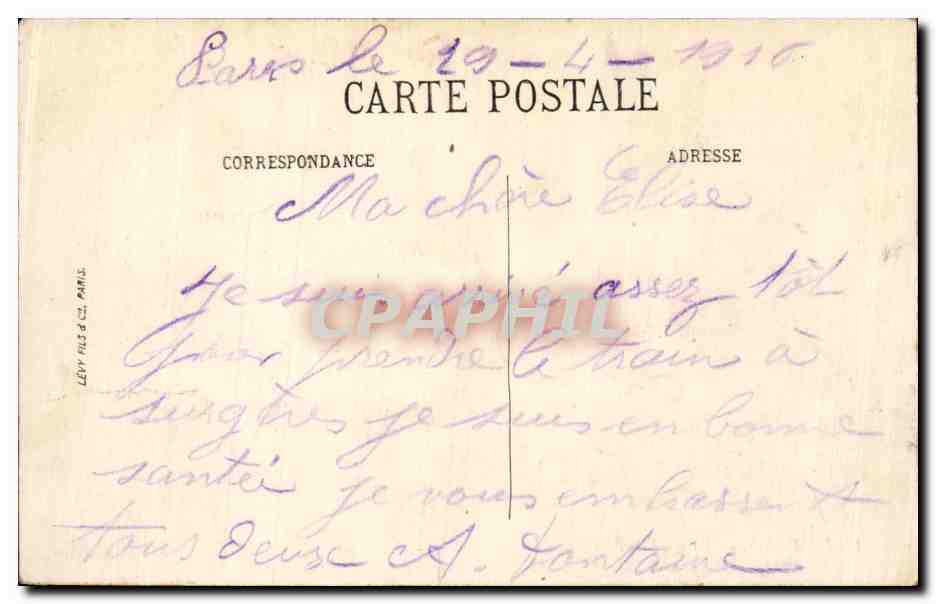 Paris le 29 - 4 - 1916
CARTE POSTALE
CORRESPONDANCE
ADRESSE
Ma chère Elise
Je suis arrivé assez tôt
CPAPHIL
pour prendre le train à
surgères je suis en bonne
santée je vous embrasse
tous deux A. Fontaine
LÉVY FILS & Cie, PARIS.